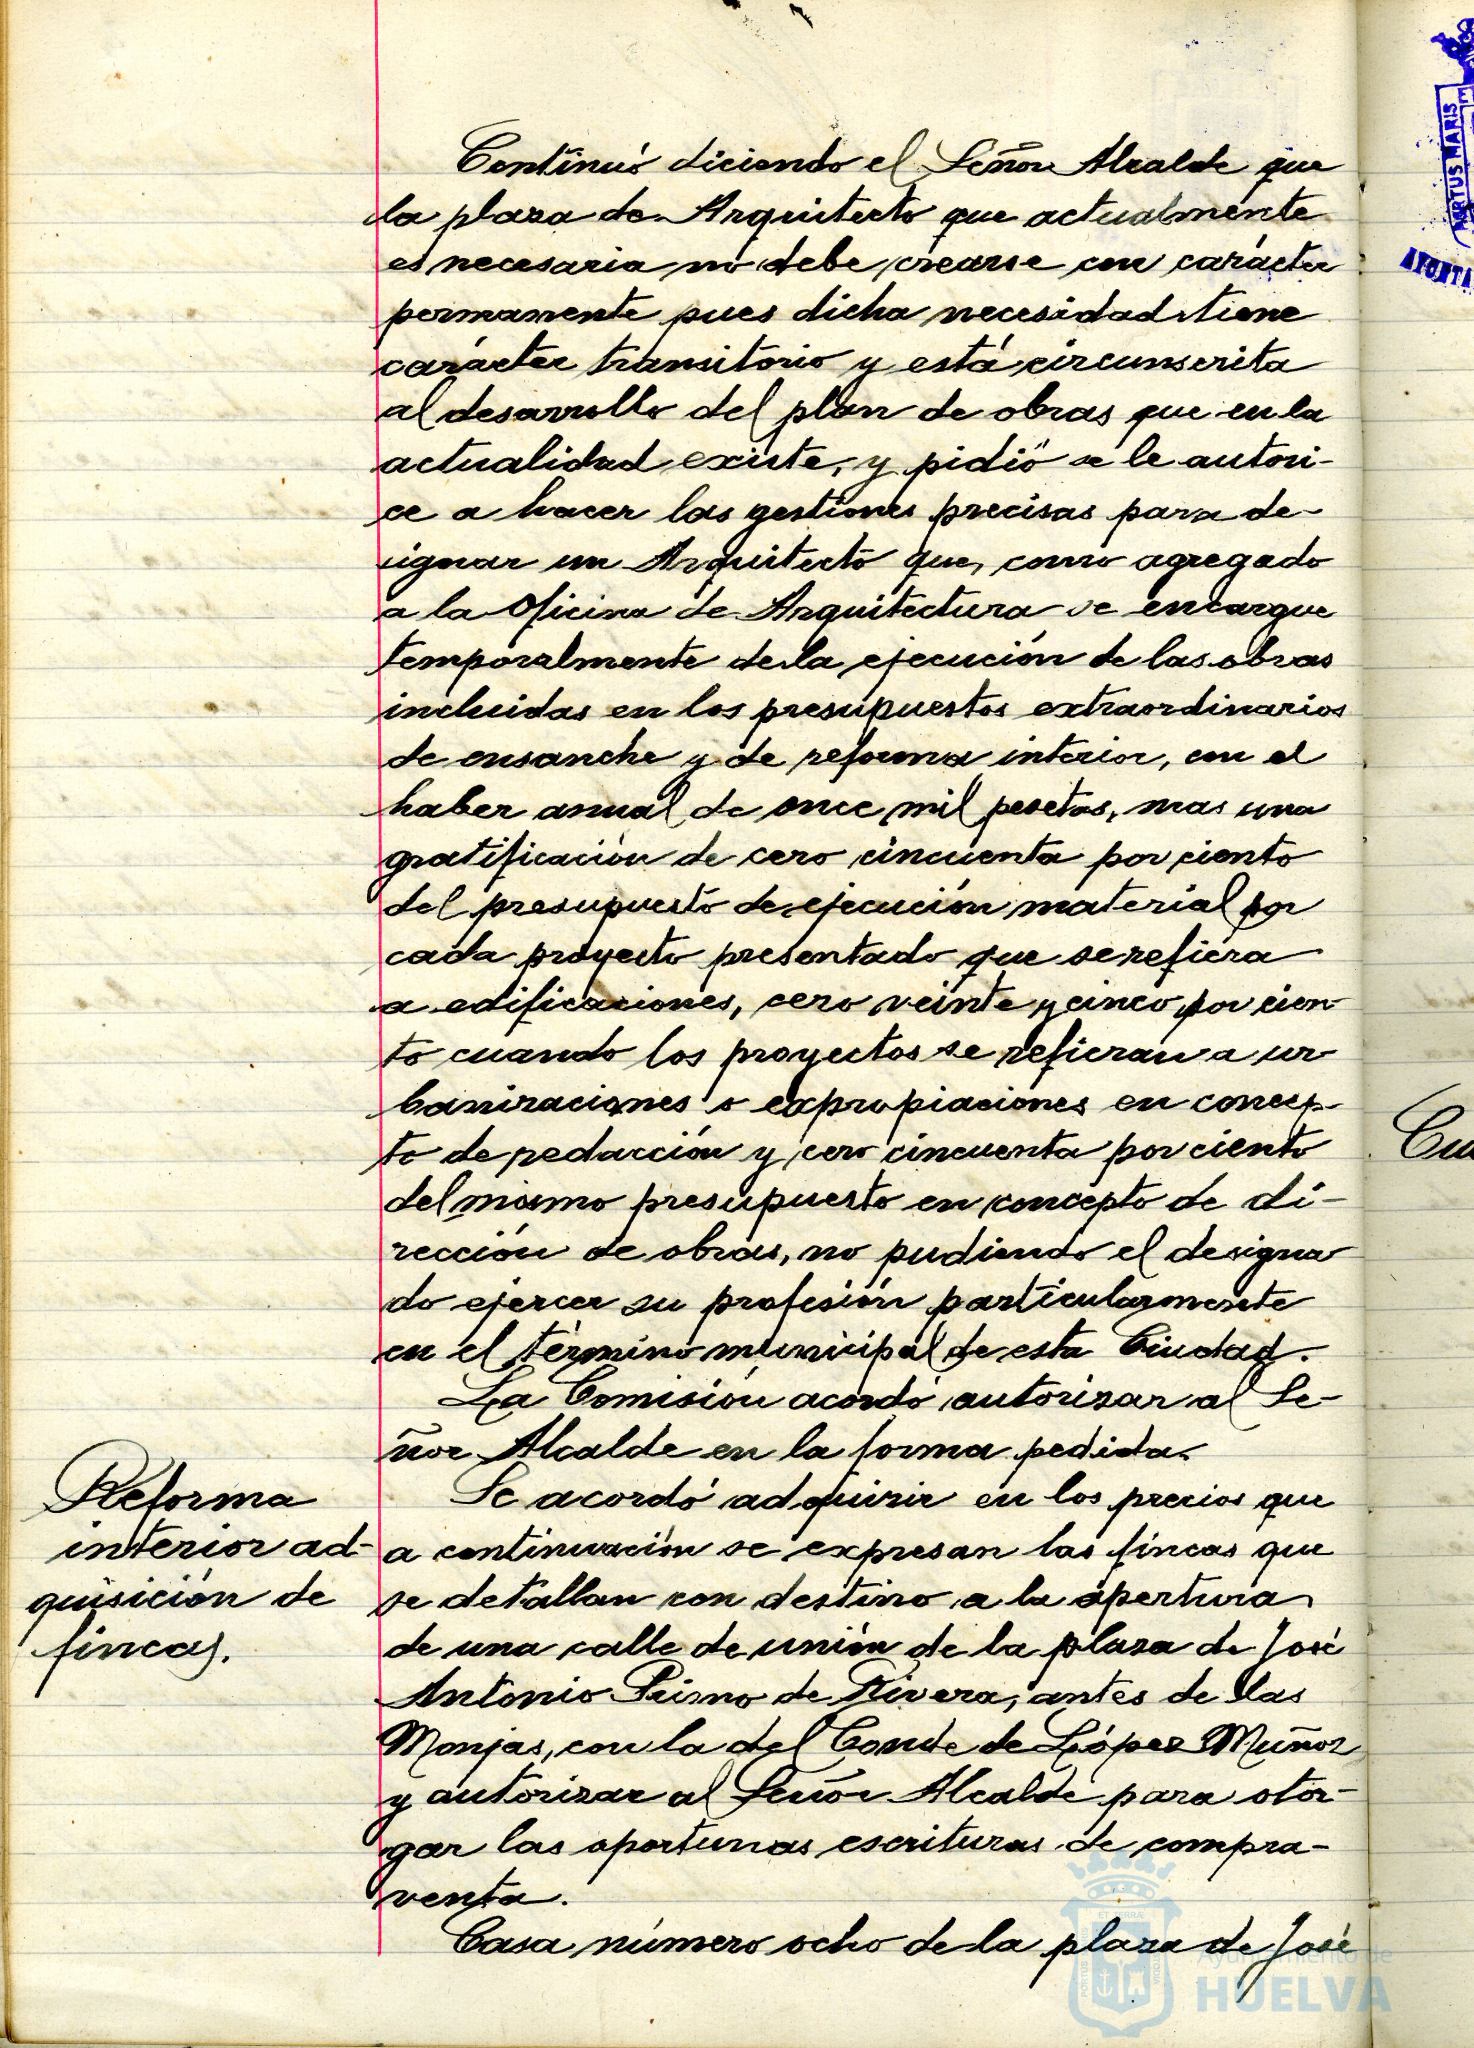 Continuó diciendo el Señor Alcalde que
la plaza de Arquitecto que actualmente
es necesaria no debe crearse con carácter
permanente pues dicha necesidad tiene
carácter transitorio y está circunscrita
al desarrollo del plan de obras que en la
actualidad existe, y pidió se le autori-
ce a hacer las gestiones precisas para de-
signar un Arquitecto que, como agregado
a la Oficina de Arquitectura se encargue
temporalmente de la ejecución de las obras
incluidas en los presupuestos extraordinarios
de ensanche y de reforma interior, con el
haber anual de once mil pesetas, mas una
gratificación de cero cincuenta por ciento
del presupuesto de ejecución material por
cada proyecto presentado que se refiera
a edificaciones, cero veinte y cinco por cien-
to cuando los proyectos se refieran a ur-
banizaciones o expropiaciones en concep-
to de redacción y cero cincuenta por ciento
del mismo presupuesto en concepto de di-
rección de obras, no pudiendo el designa-
do ejercer su profesión particularmente
en el término municipal de esta Ciudad.
La Comisión acordó autorizar al Se-
ñor Alcalde en la forma pedida.
Reforma
interior ad-
quisición de
fincas.
Se acordó adquirir en los precios que
a continuación se expresan las fincas que
se detallan con destino a la apertura
de una calle de unión de la plaza de José
Antonio Primo de Rivera, antes de las
Monjas, con la del Conde de López Muñoz
y autorizar al Señor Alcalde para otor-
gar las oportunas escrituras de compra-
venta.
Casa número ocho de la plaza de José
Ayuntamiento de
HUELVA
PORTUS MARIS
AYUNTA